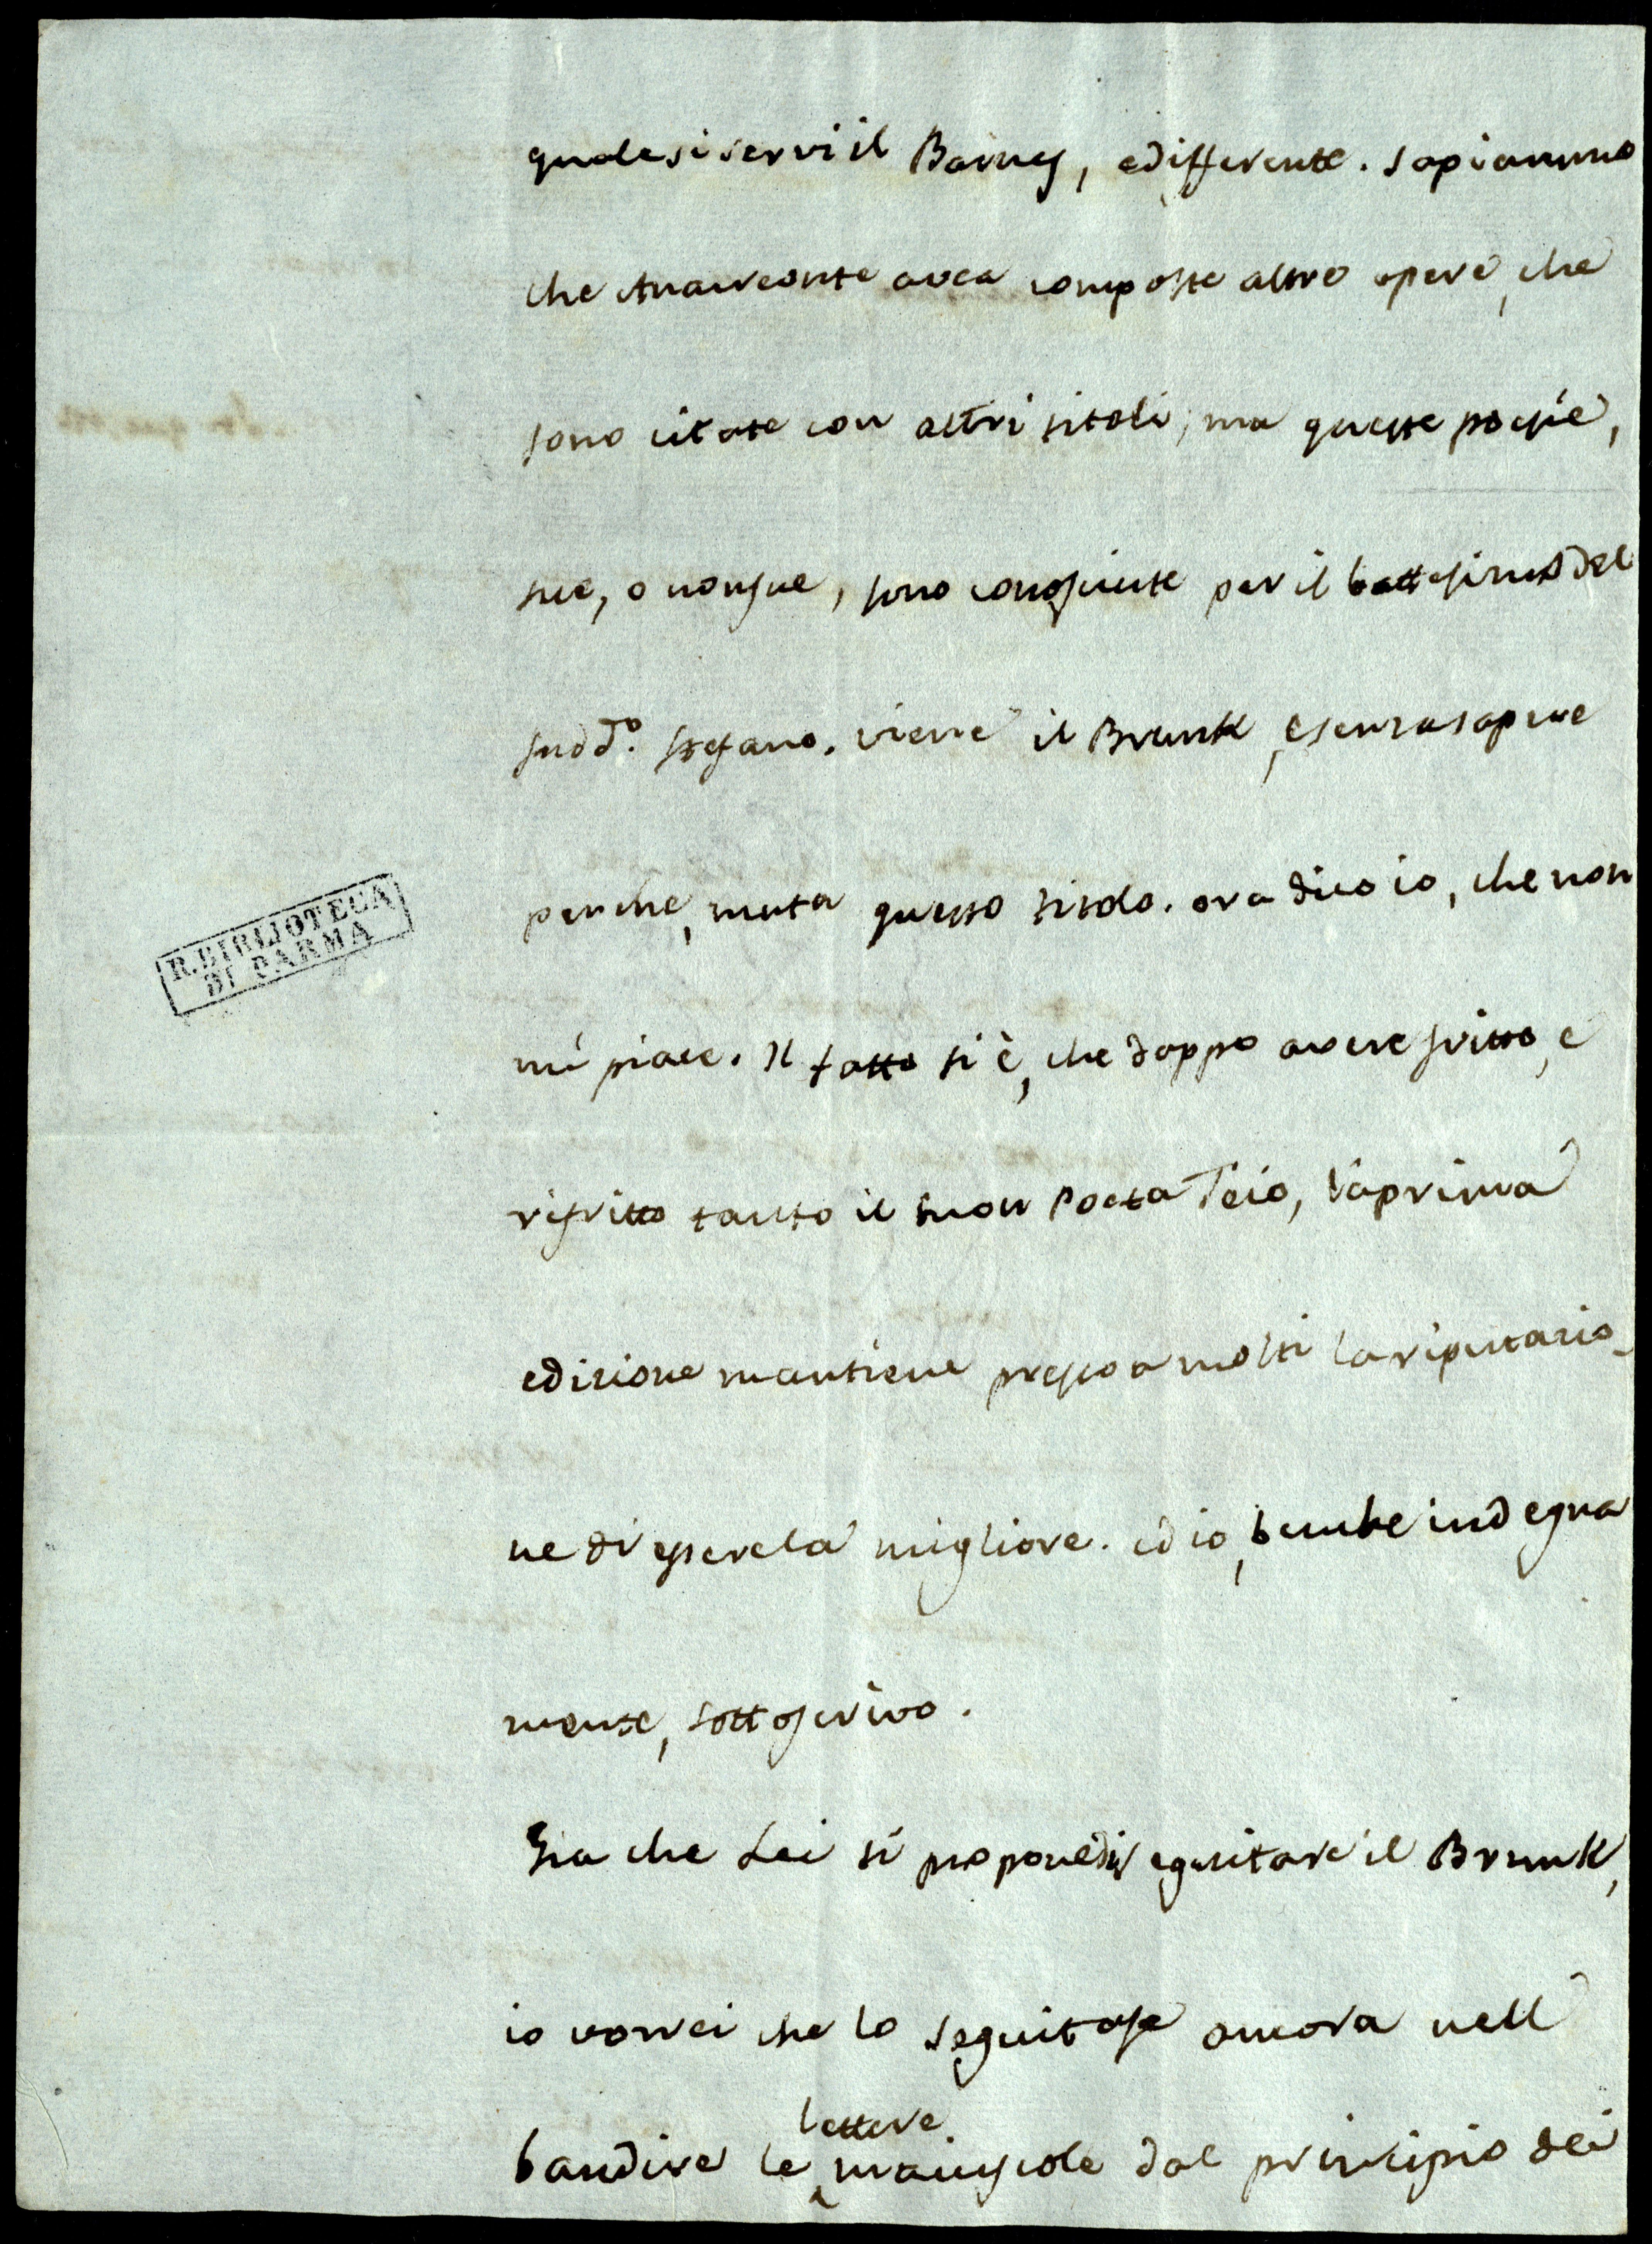 quale si servi il Barnes, e differente. sapiammo
che Anacreonte avea composte altre opere, che
sono citate con altri titoli, ma queste poesie,
sue, o non sue, sono conosciute per il battesimo del
sudd.º Stefano. viene il Brunk, e senza sapere
perche, muta questo titolo. ora dico io, che non
mi piace. Il fatto si è, che doppo avere fritto, e
rifritto tanto il buon Poeta Teio, la prima
edizione mantiene presso a molti la riputazio-
ne di essere la migliore. ed io, benche indegna
mente, sottoscrivo.
Gia che Lei si propone di seguitare il Brunk,
io vorrei che lo seguitasse ancora nell
lettere
bandire le maiuscole dal principio dei
R. BIBLIOTECA
DI PARMA